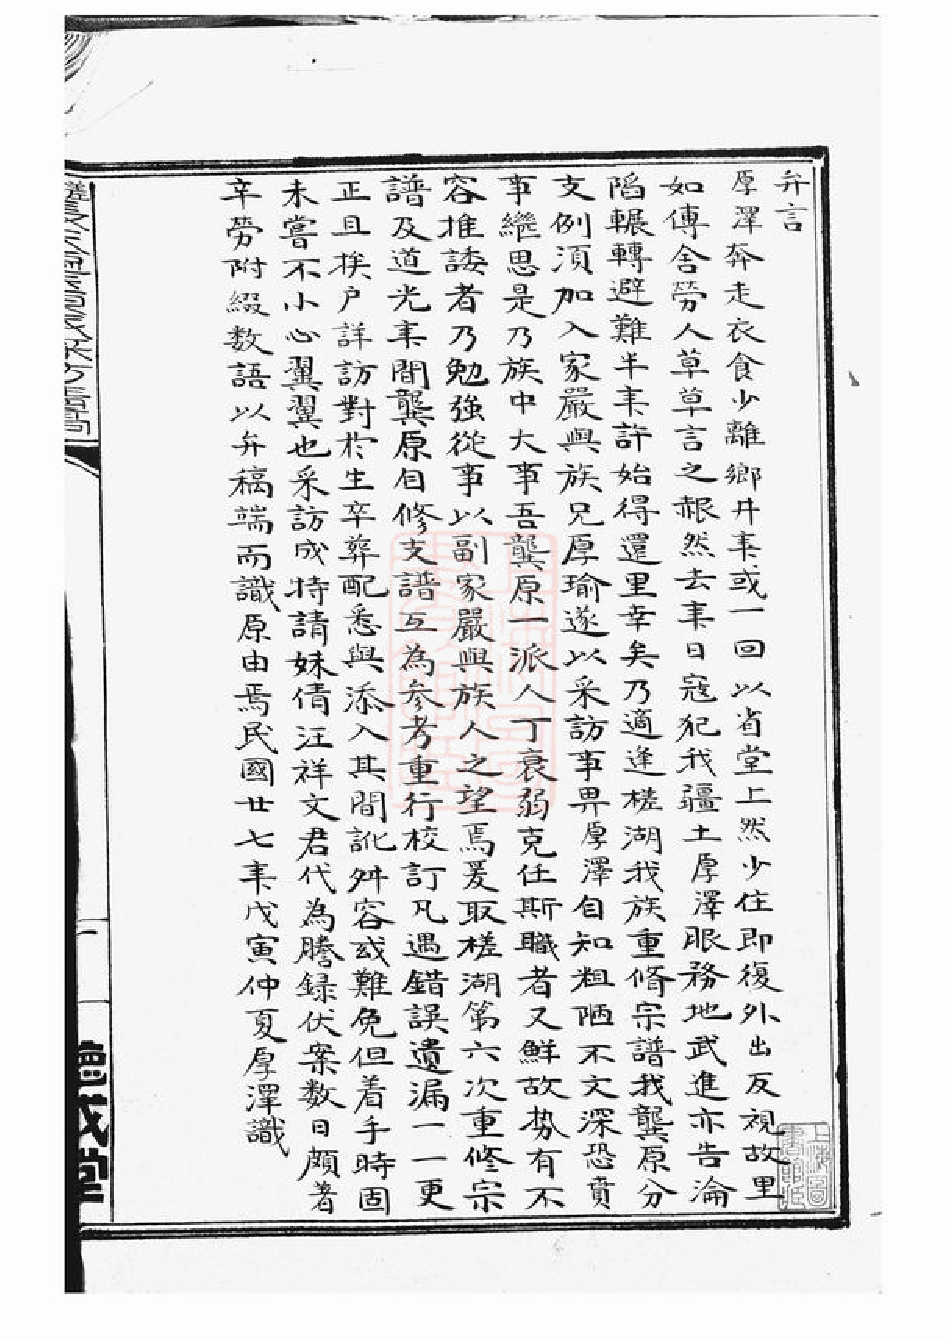 弁言
厚澤奔走衣食少離鄉井来或一回以省堂上然少住即復外出反視故里
如傳舍勞人草草言之赧然去来日寇犯我疆土厚澤服務地武進亦告淪
陷輾轉避難半来許始得還里幸矣乃適逢槎湖我族重脩宗譜我龔原分
支例須加入家嚴與族兄厚瑜遂以采訪事畀厚澤自知粗陋不文深恐賁
事繼思是乃族中大事吾龔原一派人丁衰弱克任斯職者又鮮故势有不
容推諉者乃勉強從事以副家嚴與族人之望焉爰取槎湖第六次重修宗
譜及道光来間龔原自修支譜互為參考重行校訂凡遇錯誤遺漏一一更
正且挨户詳訪對於生卒葬配悉與添入其間訛舛容或難免但着手時固
未嘗不小心翼翼也采訪成特請妹倩汪祥文君代為謄録伏案数日頗著
辛勞附綴数語以弁稿端而識原由焉民國廿七来戊寅仲夏厚澤識
德成堂
上海圖書館藏